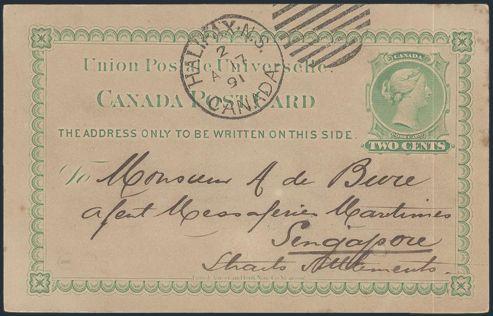 HALIFAX N.S.
2
A 7
91
CANADA
Union Postale Universelle.
CANADA POST CARD
THE ADDRESS ONLY TO BE WRITTEN ON THIS SIDE.
CANADA
TWO CENTS
To Monsieur A de Bure
agent Messageries Maritimes
Singapore
Straits Settlements.